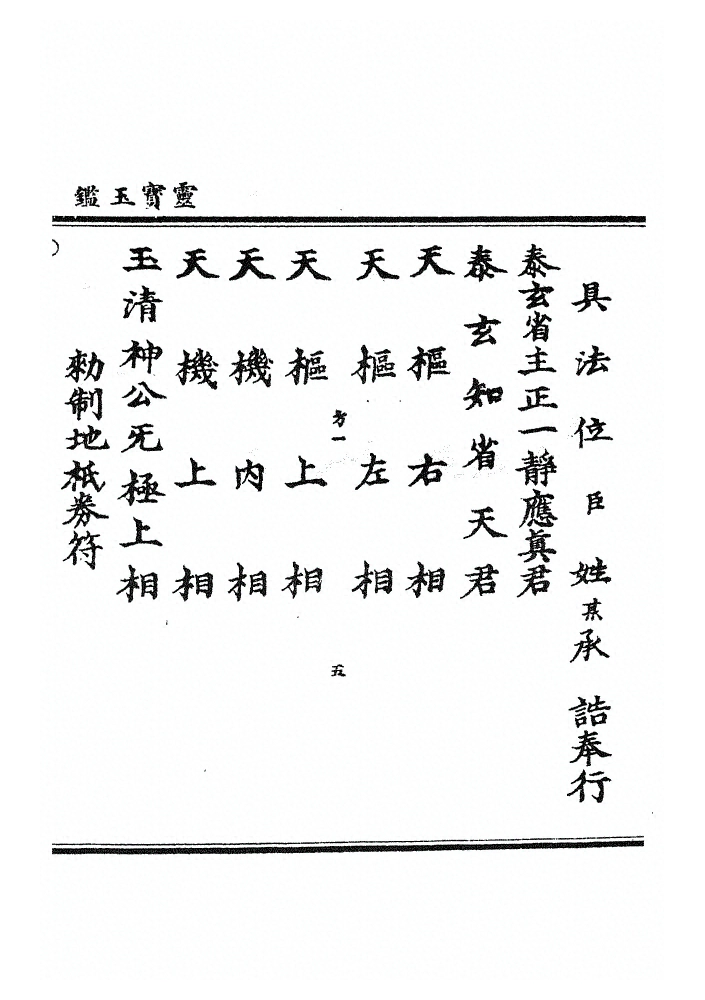 靈寶玉鑑
具法位臣姓某承誥奉行
泰玄省主正一靜應真君
泰玄知省天君
天樞右相
天樞左相
方一
五
天樞上相
天機內相
天機上相
玉清神公無極上相
勑制地祇券符